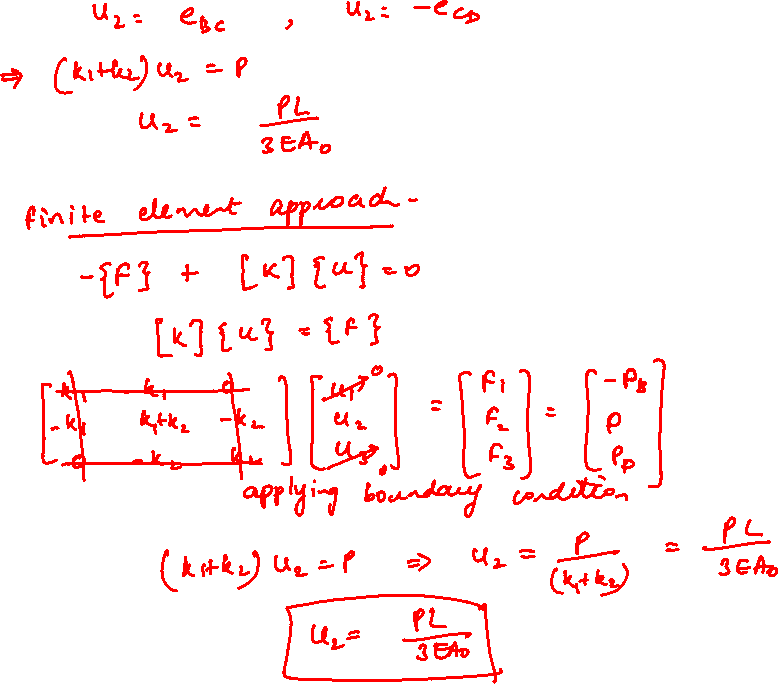 u₂ = e_BC , u₂ = -e_CD
⇒ (k₁+k₂) u₂ = P
u₂ = PL / 3EA₀
finite element approach -
-{F} + [K] {u} = 0
[K] {u} = {F}
[k₁ -k₁ 0; -k₁ k₁+k₂ -k₂; 0 -k₂ k₂] [u₁ 0; u₂; u₃ 0] = [F₁; F₂; F₃] = [-P_B; P; P_D]
applying boundary condition
(k₁+k₂) u₂ = P ⇒ u₂ = P / (k₁+k₂) = PL / 3EA₀
u₂ = PL / 3EA₀